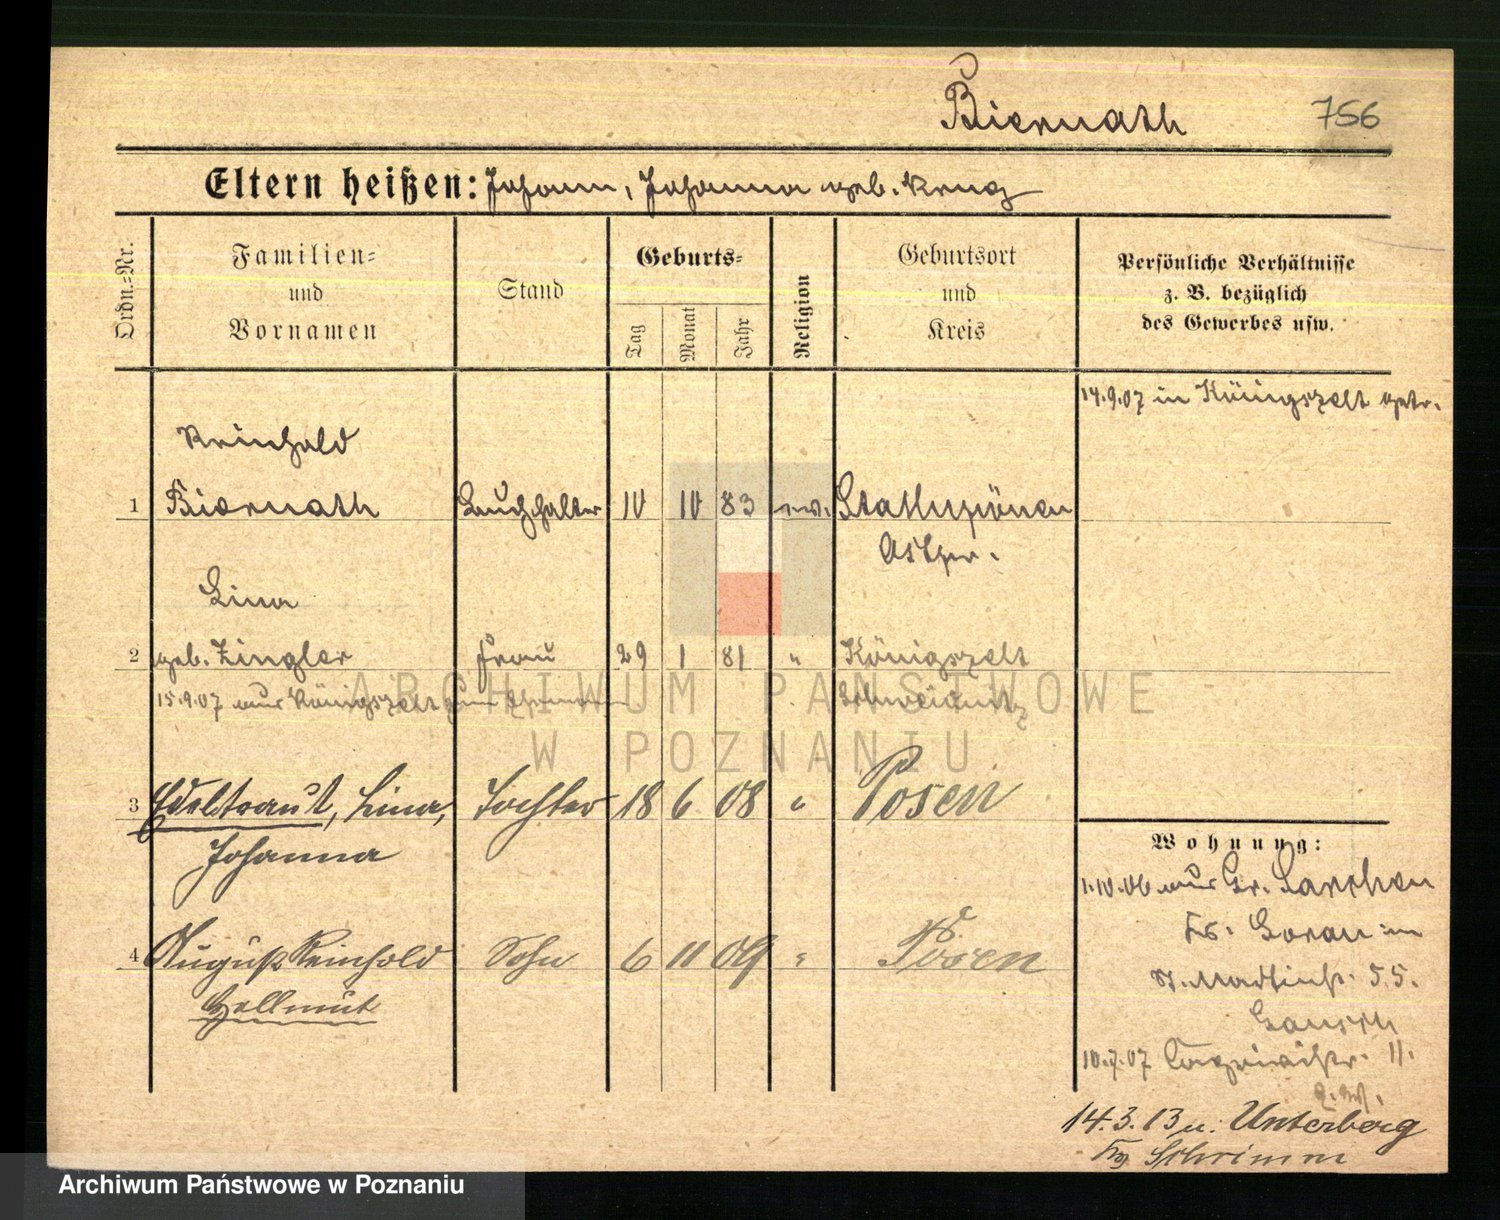 Biernath 756
Eltern heißen: Johann, Johanna geb. Krug
Ordn.-Nr.
Familien- und Vornamen
Stand
Geburts-
Tag
Monat
Jahr
Religion
Geburtsort und Kreis
Persönliche Verhältnisse
z. B. bezüglich
des Gewerbes usw.
14.9.07 in Königszelt getr.
Reinhold
1 Biernath Buchhalter 10 10 83 ev. Stallupönen
Ostpr.
Lina
2 geb. Zingler Frau 29 1 81 " Königszelt
15.9.07 aus Königszelt zum Ehemann Schweidnitz
3 Edeltraut, Lina, Tochter 18 6 08 " Posen
Johanna
4 August Reinhold Sohn 6 11 09 " Posen
Hellmut
Wohnung:
1.10.06 aus Gr. Särchen
Kr. Sorau in
St. Martinstr. 55.
10.7.07 11.
14.3.13 n. Unterberg
Kr Schrimm
ARCHIWUM PAŃSTWOWE
W POZNANIU
Archiwum Państwowe w Poznaniu